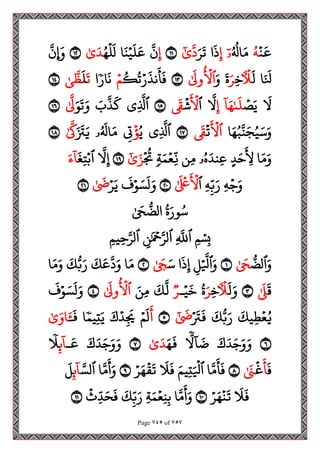 عَنْهُ مَالُهُۥٓ إِذَا تَرَدَّىٰٓ ١١ إِنَّ عَلَيْنَا لَلْهُدَىٰ ١٢ وَإِنَّ
لَنَا لَلَاخِرَةَ وَٱلُاولَىٰ ١٣ فَأَنذَرْتُكُمْ نَارًا تَلَظَّىٰ ١٤
لَا يَصْلَىٰهَآ إِلَّا ٱلَاشْقَى ١٥ ٱلَّذِى كَذَّبَ وَتَوَلَّىٰ ١٦
وَسَيُجَنَّبُهَا ٱلَاتْقَى ١٧ ٱلَّذِى يُوتِى مَالَهُۥ يَتَزَكَّىٰ ١٨
وَمَا لِأَحَدٍ عِندَهُۥ مِن نِّعْمَةٍ تُجْزَىٰٓ ١٩ إِلَّا ٱبْتِغَآءَ
وَجْهِ رَبِّهِ ٱلَاعْلَىٰ ٢٠ وَلَسَوْفَ يَرْضَىٰ ٢١
سُورَةُ الضُّحَىٰ
بِسْمِ ٱللَّهِ ٱلرَّحْمَٰنِ ٱلرَّحِيمِ
وَٱلضُّحَىٰ ١ وَٱلَّيْلِ إِذَا سَجَىٰ ٢ مَا وَدَّعَكَ رَبُّكَ وَمَا
قَلَىٰ ٣ وَلَلَاخِرَةُ خَيْرٌ لَّكَ مِنَ ٱلُاولَىٰ ٤ وَلَسَوْفَ
يُعْطِيكَ رَبُّكَ فَتَرْضَىٰٓ ٥ أَلَمْ يَجِدْكَ يَتِيمًا فَـَٔاوَىٰ
٦ وَوَجَدَكَ ضَآلًّا فَهَدَىٰ ٧ وَوَجَدَكَ عَآئِلًا
فَأَغْنَىٰ ٨ فَأَمَّا ٱلْيَتِيمَ فَلَا تَقْهَرْ ٩ وَأَمَّا ٱلسَّآئِلَ
فَلَا تَنْهَرْ ١٠ وَأَمَّا بِنِعْمَةِ رَبِّكَ فَحَدِّثْ ١١
Page ٧٤٥ of ٧٥٧